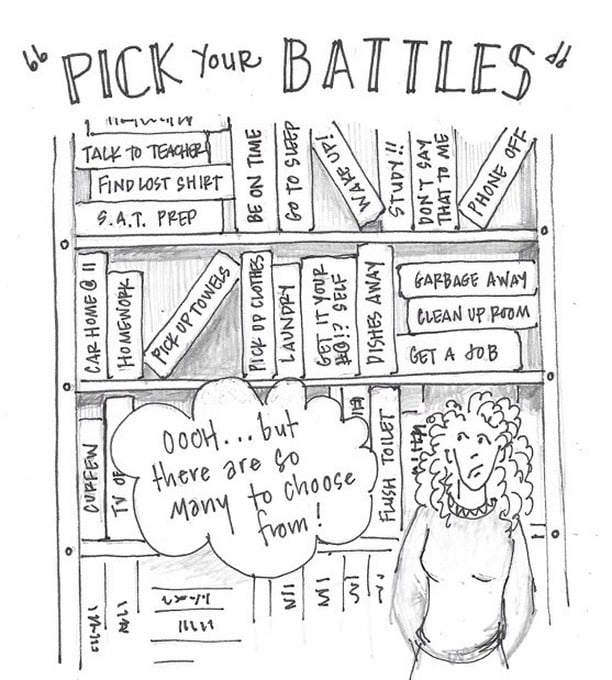 "PICK YOUR BATTLES"
TALK TO TEACHER
FIND LOST SHIRT
S.A.T. PREP
BE ON TIME
GO TO SLEEP
WAKE UP!
STUDY!!
DON'T SAY
THAT TO ME
PHONE OFF
CAR HOME @ 11
HOMEWORK
PICK UP TOWELS
PICK UP CLOTHES
LAUNDRY
GET IT YOUR
#@!? SELF
DISHES AWAY
GARBAGE AWAY
CLEAN UP ROOM
GET A JOB
CURFEW
TV OF
OOOH... but
there are so
many to choose
from!
FLUSH TOILET